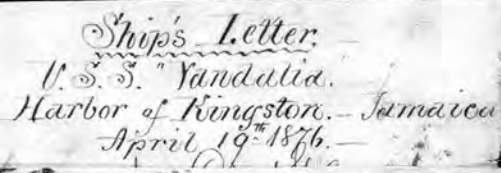 Ship's Letter.
U.S.S. "Vandalia.
Harbor of Kingston. – Jamaica
April 19th 1876. –